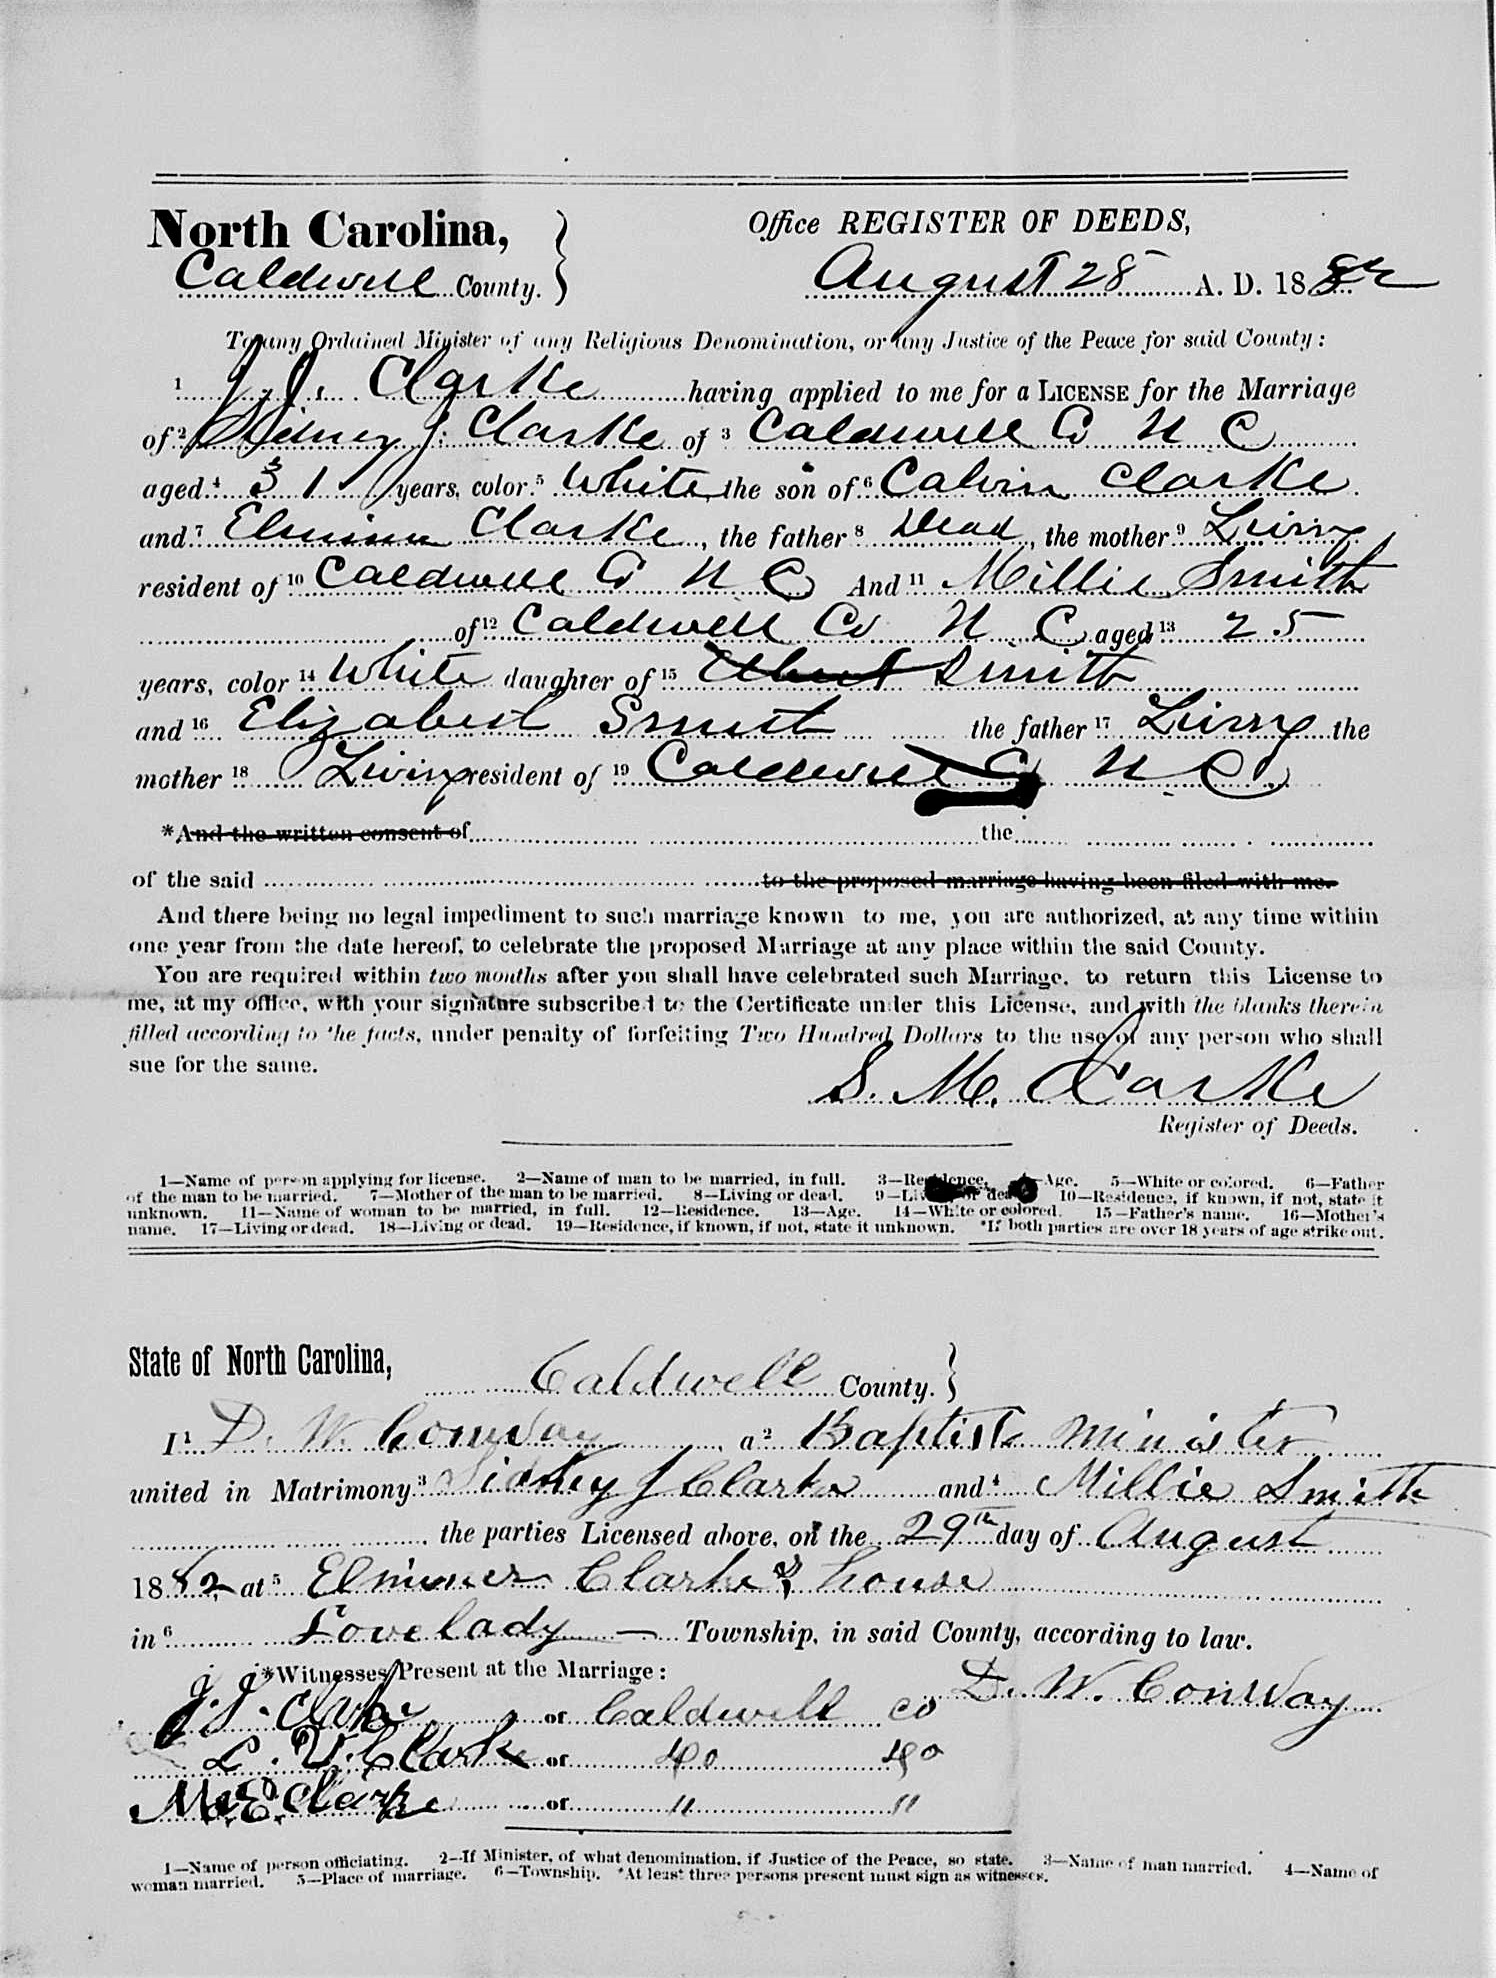 North Carolina,
Caldwell County.
Office REGISTER OF DEEDS,
August 28 A. D. 1882
To any Ordained Minister of any Religious Denomination, or any Justice of the Peace for said County:
1 J. J. Clarke having applied to me for a LICENSE for the Marriage
of 2 Sidney J. Clarke of 3 Caldwell Co N C
aged 4 31 years, color 5 White, the son of 6 Calvin Clarke
and 7 Elmina Clarke, the father 8 Dead, the mother 9 Living
resident of 10 Caldwell Co N C And 11 Millie Smith
of 12 Caldwell Co N C aged 13 25
years, color 14 White daughter of 15 Smith
and 16 Elizabeth Smith the father 17 Living the
mother 18 Living resident of 19 Caldwell Co N C
*And the written consent of the
of the said to the proposed marriage having been filed with me.
And there being no legal impediment to such marriage known to me, you are authorized, at any time within
one year from the date hereof, to celebrate the proposed Marriage at any place within the said County.
You are required within two months after you shall have celebrated such Marriage, to return this License to
me, at my office, with your signature subscribed to the Certificate under this License, and with the blanks therein
filled according to the facts, under penalty of forfeiting Two Hundred Dollars to the use of any person who shall
sue for the same.
S. M. Clarke
Register of Deeds.
1—Name of person applying for license. 2—Name of man to be married, in full. 3—Residence. 4—Age. 5—White or colored. 6—Father
of the man to be married. 7—Mother of the man to be married. 8—Living or dead. 9—Living or dead. 10—Residence, if known, if not, state it
unknown. 11—Name of woman to be married, in full. 12—Residence. 13—Age. 14—White or colored. 15—Father's name. 16—Mother's
name. 17—Living or dead. 18—Living or dead. 19—Residence, if known, if not, state it unknown. *If both parties are over 18 years of age strike out.
State of North Carolina,
Caldwell County.
I 1 D. W. Conway a 2 Baptist Minister
united in Matrimony 3 Sidney J Clarke and 4 Millie Smith
the parties Licensed above, on the 29th day of August
1882, at 5 Elminer Clarke's house
in 6 Lovelady — Township, in said County, according to law.
*Witnesses Present at the Marriage:
D. W. Conway
J. J. Clarke of Caldwell co
L. V. Clark of do do
M. E. Clarke of " "
1—Name of person officiating. 2—If Minister, of what denomination, if Justice of the Peace, so state. 3—Name of man married. 4—Name of
woman married. 5—Place of marriage. 6—Township. *At least three persons present must sign as witnesses.